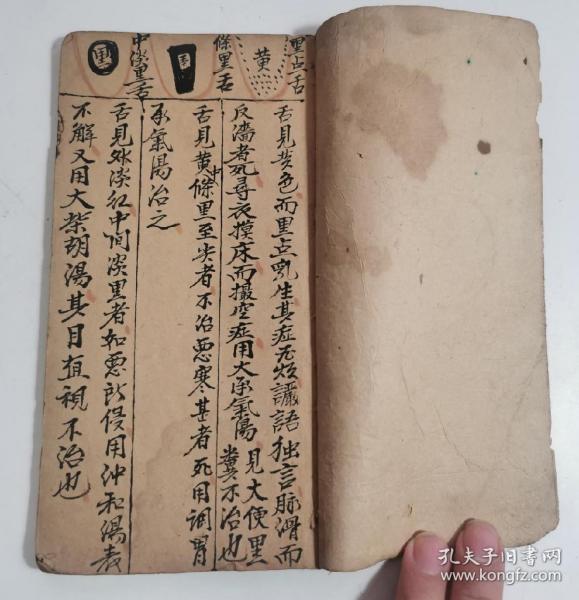 里占舌
黄
條里舌
黑
中淡里舌
黑
舌見黄色而里占乱生其症 讝語独言脉滑而
反濇者死尋衣摸床而撮空症用大承氣湯見大便里
糞不治也
舌見黄條中里至尖者不治惡寒甚者死用調胃
承氣湯治之
舌見外淡紅中间淡里者如惡所侵用沖和湯表
不解又用大柴胡湯其目直視不治也
孔夫子旧书网
www.kongfz.com